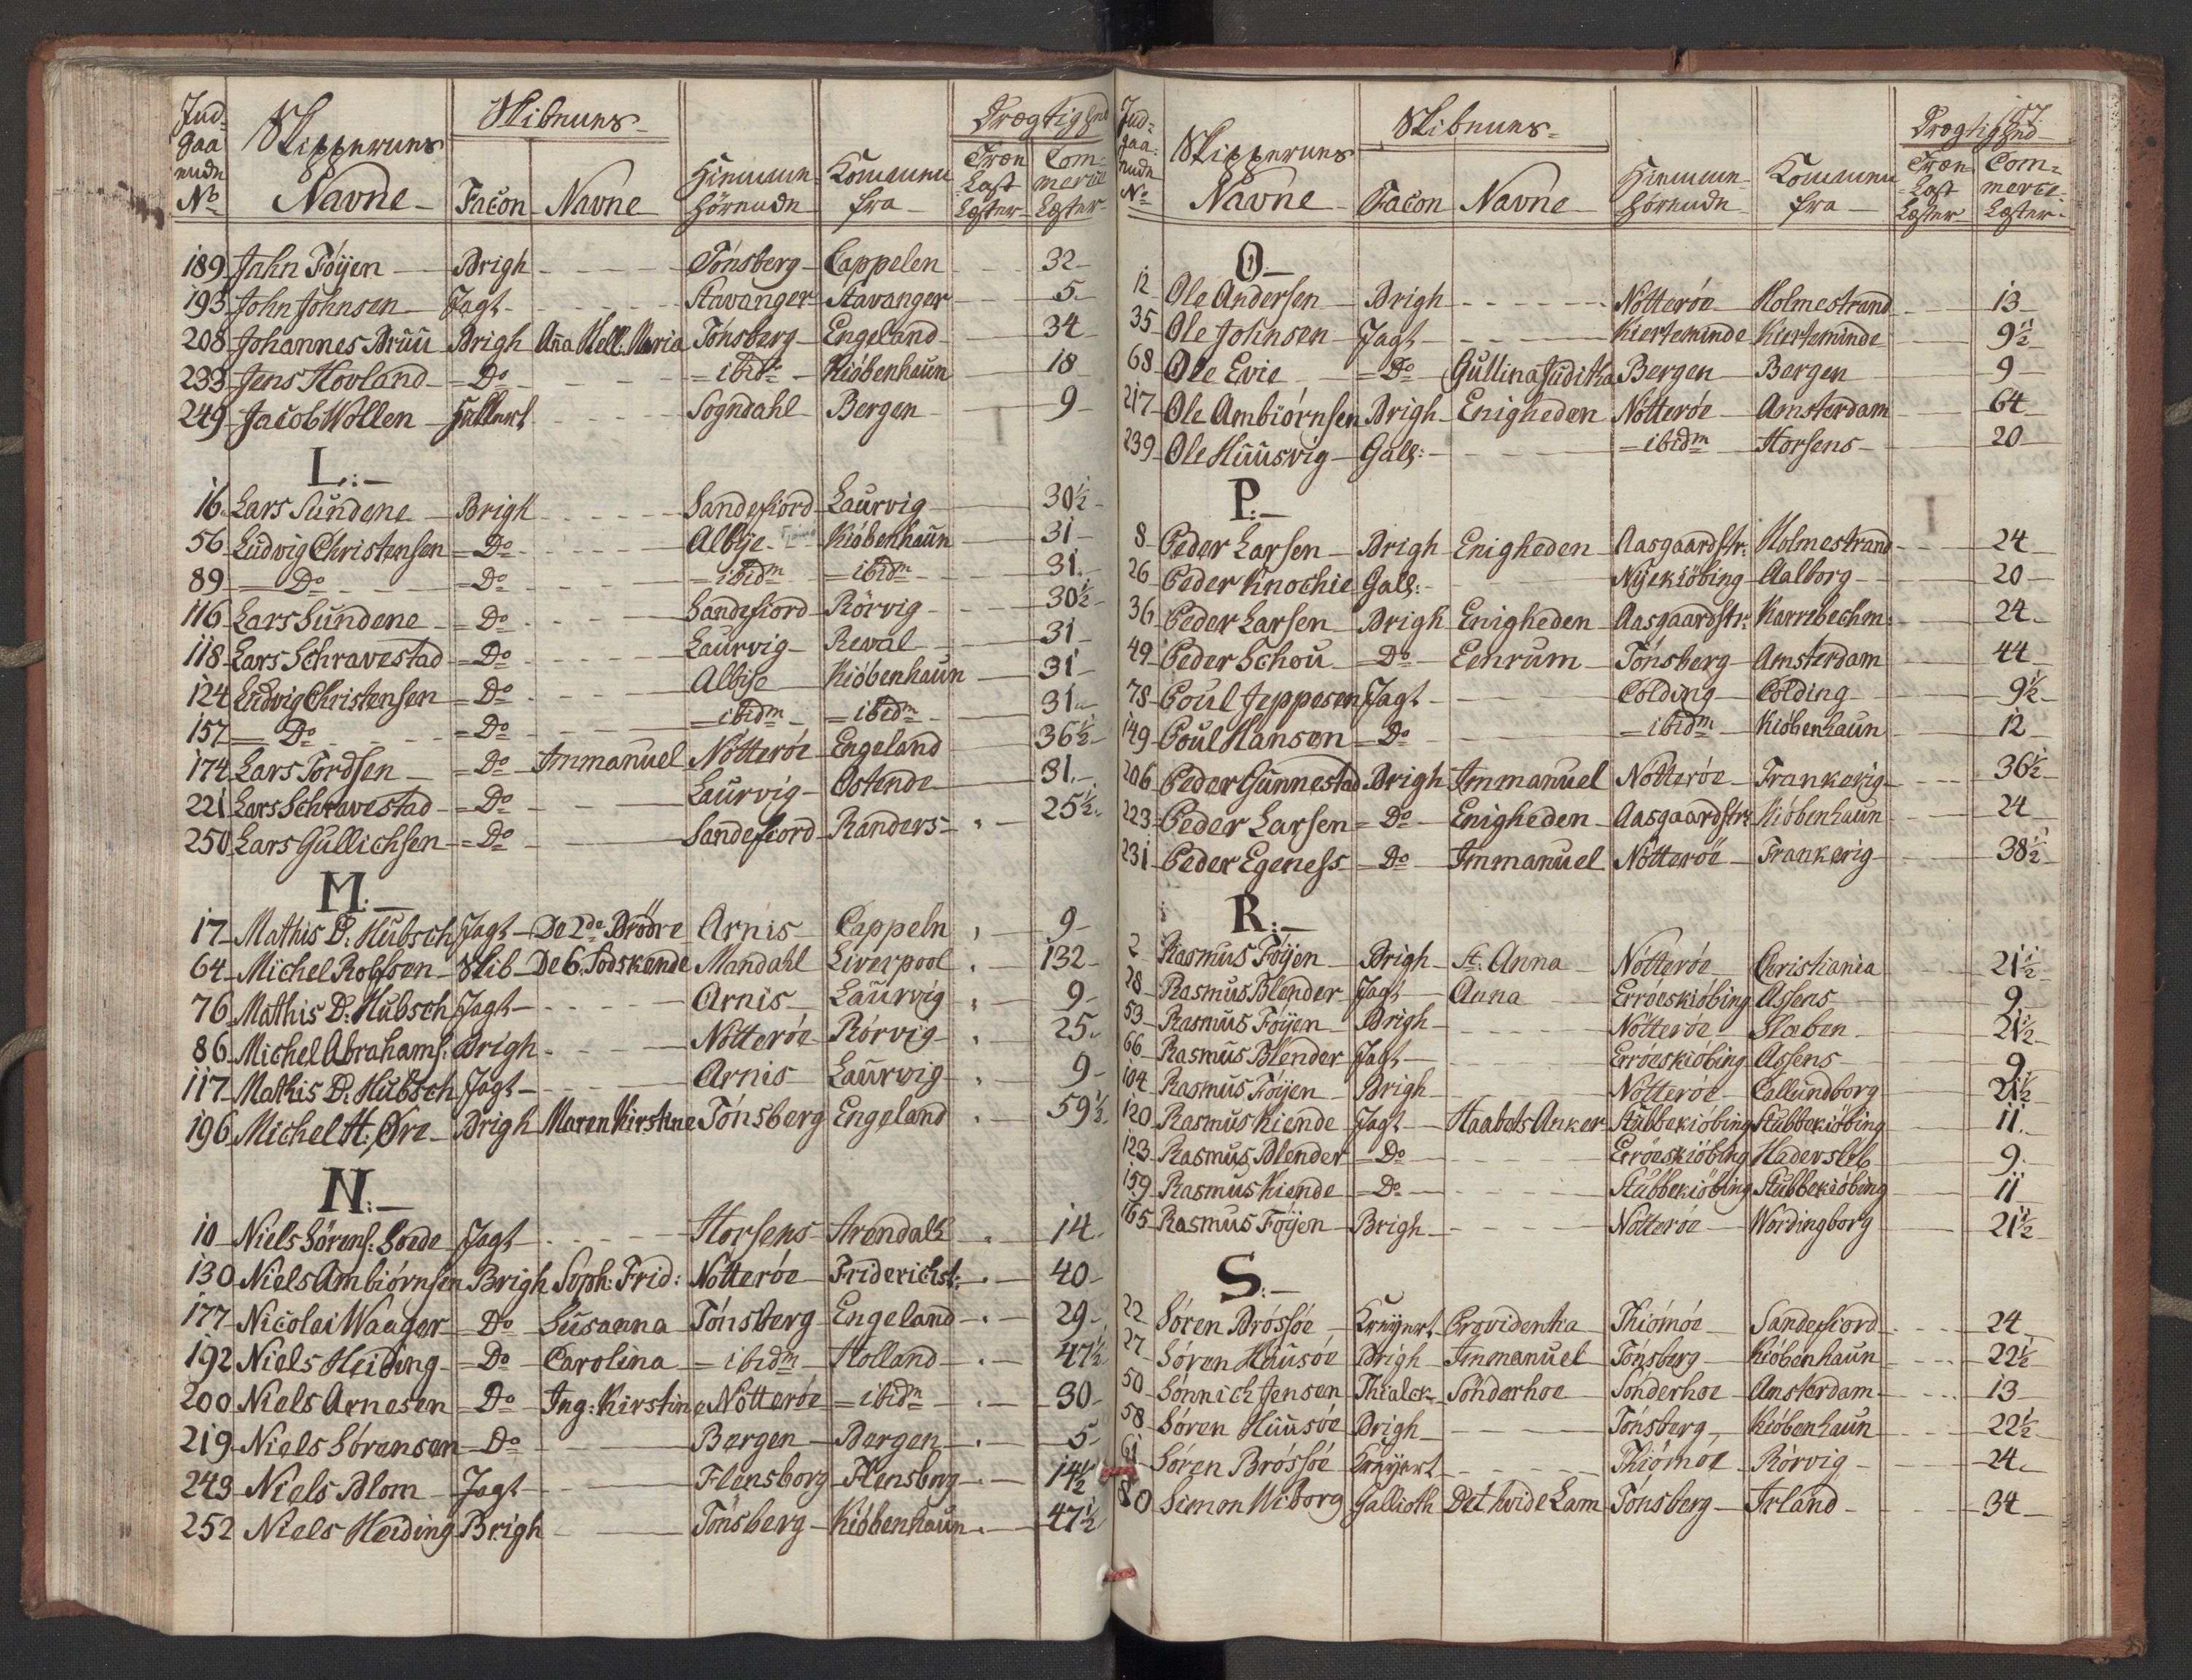 Ind-
gaa
ende
No
Skipperens
Navne
Skibenes
Facon
Navne
Hiemme-
hörende
Kommen
fra
Drægtighed
Træ
Last
Læster
Com-
merce
Læster
189 Jahn Föÿen Brigh Tönsberg Cappelen 32
193 John Johnsen Jagt Stavanger Stavanger 5
208 Johannes Bruu Brigh Aña Hell: Maria Tönsberg Engeland 34
233 Jens Hovland Do ibidm Kiöbenhaun 18
249 Jacob Wollen Hukkert Sogndahl Bergen 9
L:
16 Lars Sundene Brigh Sandefiord Laurvig 30½
56 Ludvig Christensen Do Albÿe Kiöbenhaun 31
89 Do Do ibidm ibidm 31
116 Lars Sundene Do Sandefiord Rörvig 30½
118 Lars Schravestad Do Laurvig Reval 31
124 Ludvig Christensen Do Albÿe Kiöbenhaun 31
157 Do Do ibidm ibidm 31
174 Lars Tordsen Do Immanuel Nötteröe Engeland 36½
221 Lars Schravestad Do Laurvig Ostende 31
250 Lars Gullichsen Do Sandefiord Randers 25½
M:
17 Mathis D. Hubsch Jagt De 2de Brödre Arnis Cappeln 9
64 Michel Rolfsen Skib De 6. Södskende Mandahl Liverpool 132
76 Mathis D. Hubsch Jagt Arnis Laurvig 9
86 Michel Abrahams: Brigh Nötteröe Rörvig 25
117 Mathis D. Hubsch Jagt Arnis Laurvig 9
196 Michel H: Öre Brigh Maren Kirstine Tönsberg Engeland 59½
N:
10 Niels Sörens: Soede Jagt Horsens Arendals 14
130 Niels Ambiörnsen Brigh Soph: Frid: Nötteröe Friderichst: 40
177 Nicolai Waager Do Susanna Tönsberg Engeland 29
192 Niels Heiding Do Carolina ibidm Holland 47½
200 Niels Arnesen Do Ing: Kirstine Nötteröe ibidm 30
219 Niels Sörensen Do Bergen Bergen 5
243 Niels Blom Jagt Flensborg Flensborg 14½
252 Niels Heiding Brigh Tönsberg Kiöbenhaun 47½
157
Ind-
gaa-
ende
No
Skipperens
Navne
Skibenes
Facon
Navne
Hiemme-
hörende
Kommen
fra
Drægtighed
Træ
Last
Læster
Com-
merce
Læster
O
12 Ole Andersen Brigh Nötteröe Holmestrand 13
35 Ole Johnsen Jagt Kierteminde Kierteminde 9½
68 Ole Evie Do Gullina Juditha Bergen Bergen 9
217 Ole Ambiörnsen Brigh Enigheden Nötteröe Amsterdam 64
239 Ole Huusvig Gall: ibidm Horsens 20
P:
8 Peder Larsen Brigh Enigheden Aasgaardstr: Holmestrand 24
26 Peder Knochie Gall: Nÿekiöbing Aalborg 20
36 Peder Larsen Brigh Enigheden Aasgaardstr: Karrebechm: 24
49 Peder Schou Do Eenrum Tönsberg Amsterdam 44
78 Poul Jeppesen Jagt Colding Colding 9½
149 Poul Hansen Do ibidm Kiöbenhaun 12
206 Peder Gunnestad Brigh Immanuel Nötteröe Frankerig 36½
223 Peder Larsen Do Enigheden Aasgaardstr: Kiöbenhaun 24
231 Peder Egeness Do Immanuel Nötteröe Frankerig 38½
R:
2 Rasmus Föÿen Brigh St: Anna Nötteröe Christiania 21½
28 Rasmus Blender Jagt Anna Erröeskiöbing Assens 9
53 Rasmus Föÿen Brigh Nötteröe Slæben 21½
66 Rasmus Blender Jagt Erröeskiöbing Assens 9
104 Rasmus Föÿen Brigh Nötteröe Callundborg 21½
120 Rasmus Kiende Jagt Haabets Anker Stubbekiöbing Stubbekiöbing 11
123 Rasmus Blender Do Erröeskiöbing Hadersleb 9
159 Rasmus Kiende Do Stubbekiöbing Stubbekiöbing 11
165 Rasmus Föÿen Brigh Nötteröe Wordingborg 21½
S:
22 Sören Brössöe Kreÿert Providentia Thiömöe Sandefiord 24
27 Sören Huusöe Brigh Immanuel Tönsberg Kiöbenhaun 22½
50 Sönnich Jensen Thialck Sönderhoe Sönderhoe Amsterdam 13
58 Sören Huusöe Brigh Tönsberg Kiöbenhaun 22½
61 Sören Brössöe Kreÿert Thiömöe Rörvig 24
80 Simon Wiborg Gallioth Det hvide Lam Tönsberg Irland 34